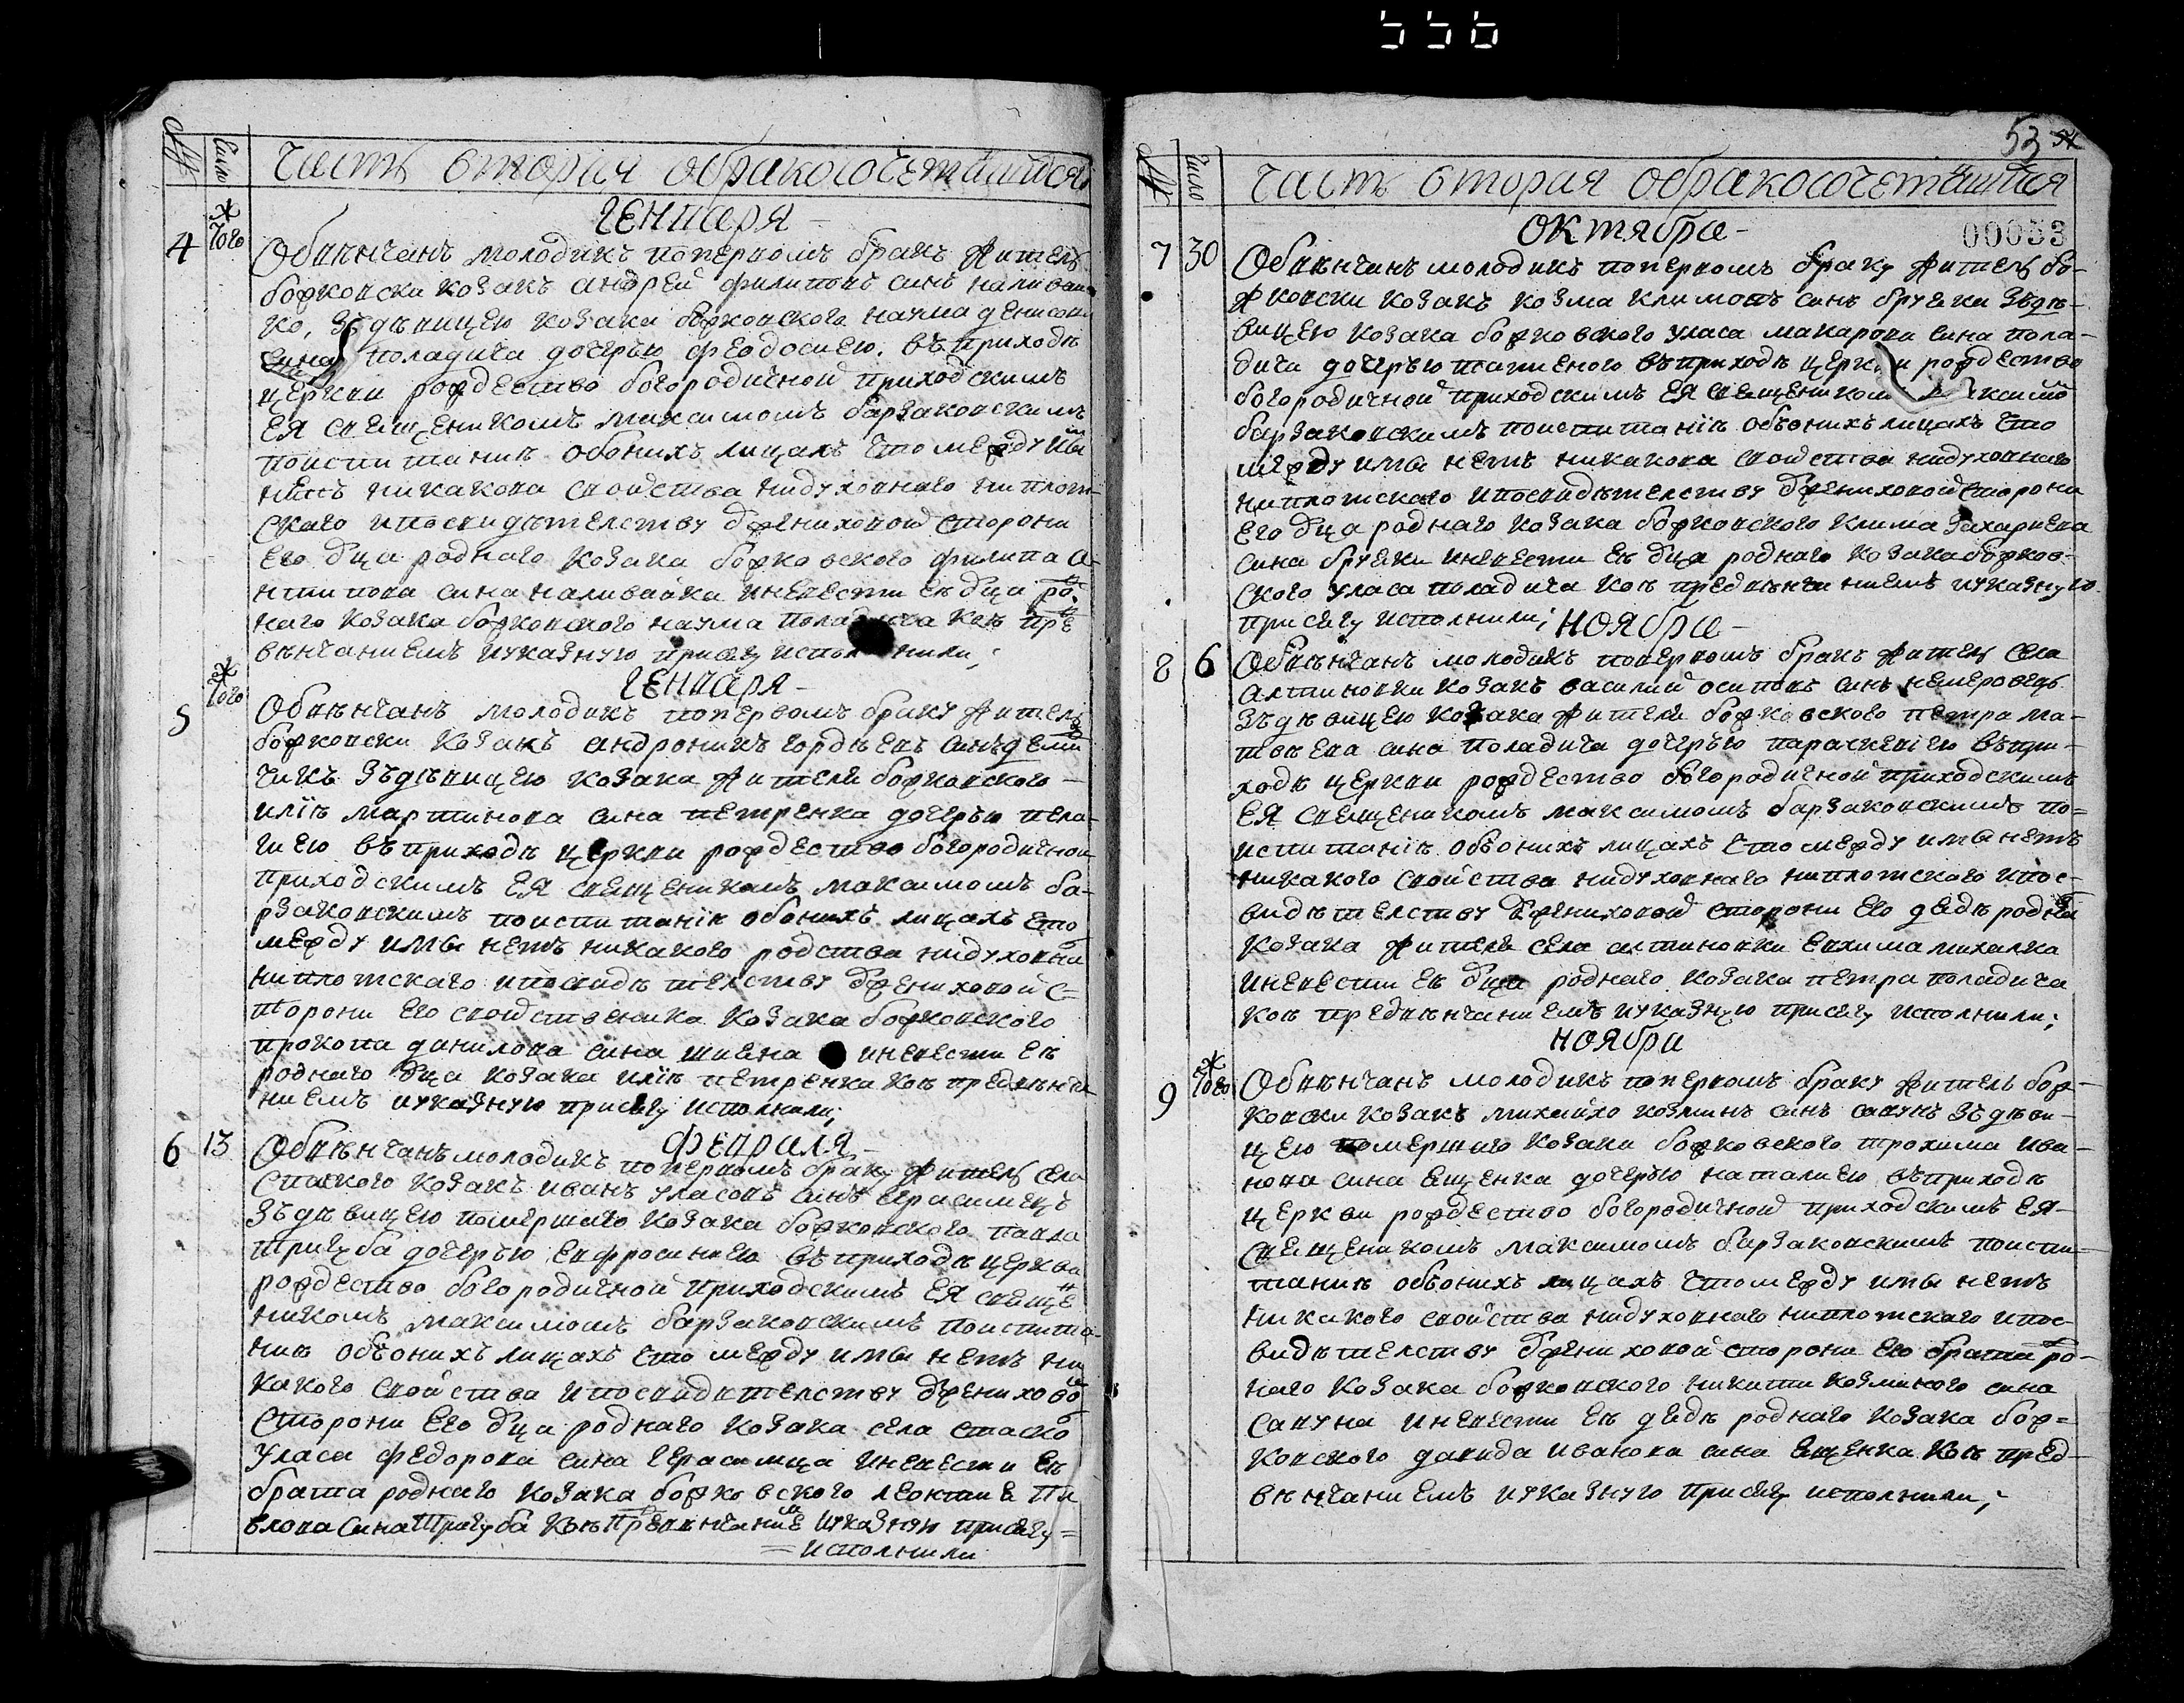 556
№ Число
Часть вторая обракосочетавшихся
Генваря
4 Того ж
Обвѣнчанъ молодикъ попервомъ бракѣ житель
божковски козакъ андрей филиповъ синъ наливай
ко, зъдѣвицею козака божковского наума денисова
сина поладича дочерью феодосиею, въприходѣ
церкви рождество богородичной приходскимъ
ея священикомъ максимомъ барзаковскимъ
поиспитание обоихъ лицахъ что между имы
нетъ никакова свойства нидуховнаго ниплот-
скаго ипосвидѣтелству бжениховой сторони
его оца роднаго козака божковского филипа а-
нтипова сина наливайка иневести еѣ оца род
наго козака божковского наума поладича коѣ пре
вѣнчаниемъ иуказную присягу исполнили;
Генваря
5 Того ж
Обвѣнчанъ молодикъ попервомъ браку житель
божковски козакъ андроникъ гордѣевъ синъ деми
чикъ зъдѣвицею козака жителя божковского
илiѣ мартинова сина петренка дочерью пела-
гиею въприходѣ церкви рождество богородичной
приходскимъ ея священикомъ максимомъ ба-
рзаковскимъ поиспитанiѣ обонихъ лицахъ что
между имы нетъ никакого родства нидуховна
ниплотскаго ипосвидѣтелству бжениховой с-
торони его свойственика козака божковского
прокопа данилова сина шиена иневести еѣ
роднаго оца козака илiѣ петренка коѣ предвѣнча
ниемъ иуказную присягу исполнили;
Февраля
6 13
Обвѣнчанъ молодикъ попервомъ браку житель села
Стаского козакъ иванъ уласовъ синъ герасимецъ
зъдѣвицею помершаго козака божковского павла
тригуба дочерью евфросиниею въприходѣ церкви
рождество богородичной приходскимъ ея свяще
никомъ максимомъ барзаковскимъ поиспита-
ниѣ объонихъ лицахъ что между имы нетъ ни
какого свойства ипосвидѣтелству бженихово
сторони его оца роднаго козака села стаско
уласа федорова сина герасимца иневести еѣ
брата роднаго козака божковского леонтие па
влова сина тригуба коѣ превѣнчание иуказную присягу
исполнили
53
№ Число
Часть вторая обракосочетавшихся
00053
Октября
7 30
Обвѣнчанъ молодикъ попервомъ браку житель бо-
жковски козакъ козма климовъ синъ бруяки зъдѣ-
вицею козака божковского уласа макарова сина пола-
дича дочерью въприходѣ церкви рождество
богородичной приходскимъ ея священиком максимо
барзаковскимъ поиспитанiѣ объонихъ лицахъ что
между имы нетъ никакова свойства нидуховнаго
ниплотскаго ипосвидѣтелству бжениховой сторони
его оца роднаго козака божковского клима захариева
сина бруяки иневести еѣ оца роднаго козака божков-
ского уласа поладича коѣ предвѣнчаниемъ иуказную
присягу исполнили;
Ноября
8 6
Обвѣнчанъ молодикъ попервомъ бракѣ житель села
алтиновки козакъ василий осиповъ синъ немеровецъ
зъдѣвицею козака жителя божковского петра ма-
твѣева сина поладича дочерью параскевiею въпри-
ходѣ церкви рождество богородичной приходскимъ
ея священикомъ максимомъ барзаковскимъ по-
испитанiѣ объонихъ лицахъ что между имы нетъ
никакого свойства нидуховнаго ниплотского ипос-
видѣтелству бжениховой сторони его дядѣ родна
козака жителя села алтиновки евхима михалка
иневести еѣ оца роднаго козака петра поладича
коѣ предвѣнчаниемъ иуказную присягу исполнили;
Ноября
9 Того ж
Обвѣнчанъ молодикъ попервомъ браку житель бож-
ковски козакъ михайло козминъ синъ сапунъ зъдѣви-
цею помершаго козака божковского трохима ива-
нова сина ещенка дочерью наталиею въприходѣ
церкви рождество богородичной приходскимъ ея
священикомъ максимомъ барзаковскимъ поиспи-
таниѣ объонихъ лицахъ что между имы нетъ
никакого свойства нидуховнаго ниплотскаго ипос-
видѣтелству бжениховой сторони его брата ро-
наго козака божковского никити козминого сина
сапуна иневести еѣ дядѣ роднаго козака бож-
ковского давида иванова сина ещенка коѣ пред-
вѣнчаниемъ иуказную присягу исполнили;